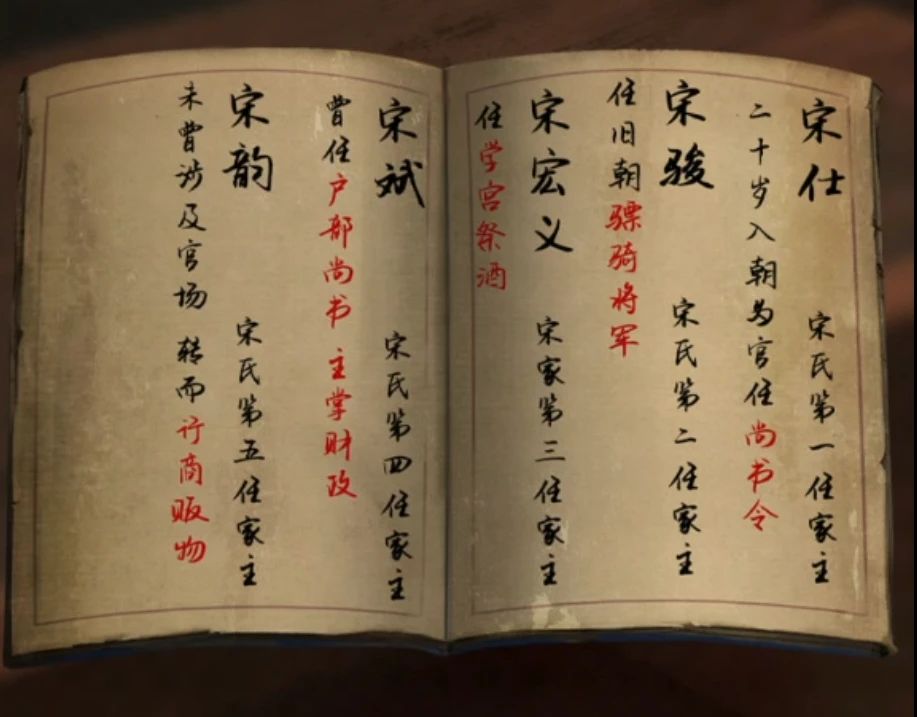 宋仕 宋氏第一任家主
二十岁入朝为官任尚书令
宋骏 宋氏第二任家主
任旧朝骠骑将军
宋宏义 宋家第三任家主
任学宫祭酒
宋斌 宋氏第四任家主
曾任户部尚书 主掌财政
宋韵 宋氏第五任家主
未曾涉及官场 转而行商贩物